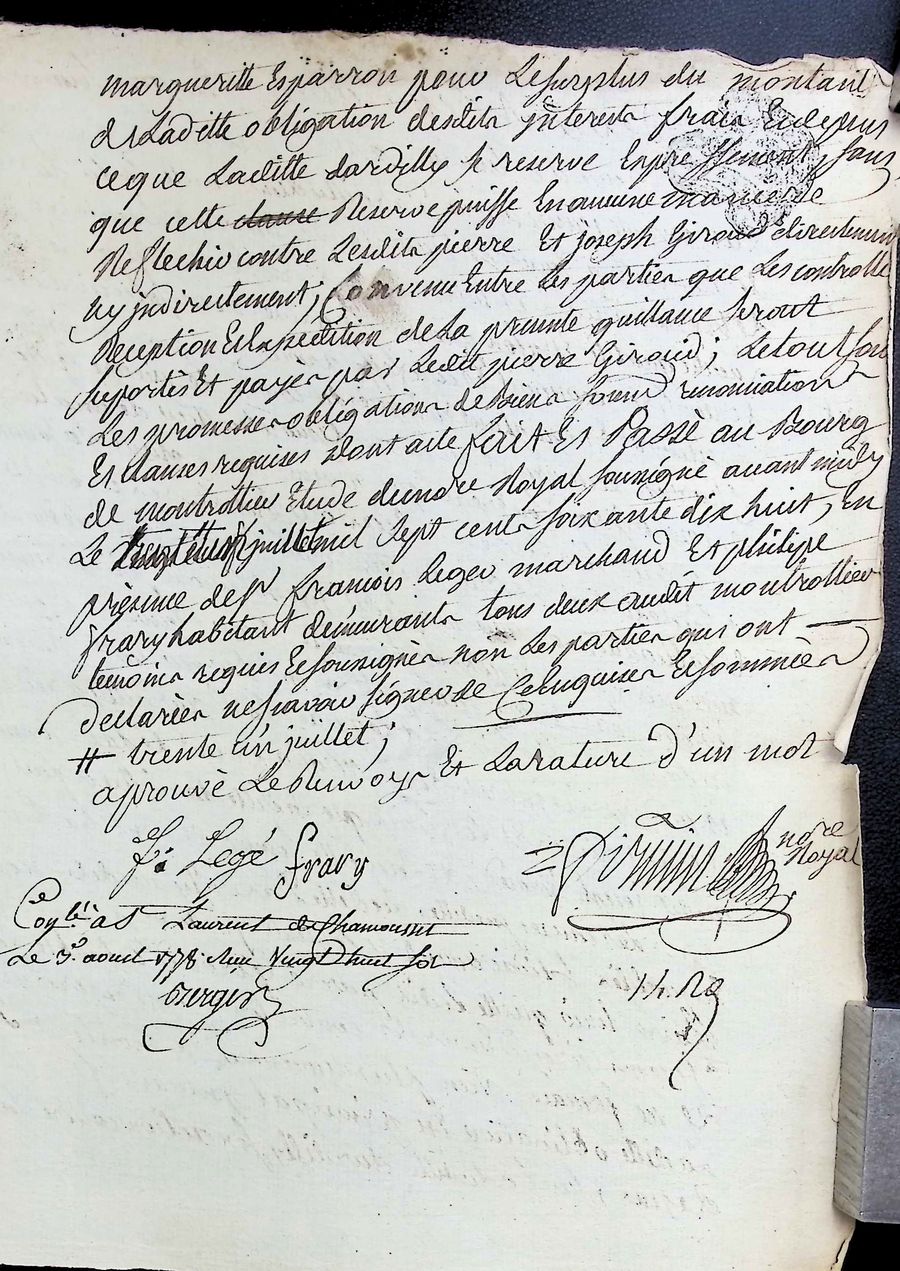 margueritte Esparron pour Lesurplus du montant
de Laditte obligation desdits jnterests frais Et depens
ceque Laditte dardilly se reserve Expressement, sans
que cette clause Reserve puisse En aucune maniere
Reflechir contre Lesdits pierre Et joseph Giroud directement
ny jndirectement; Convenu Entre Les parties que Les controlle
Reception Et Expedition de La presente quittance seront
suportés Et payés par Ledit pierre Giroud; Le tout sous
Les promesses obligations de Biens soumis renonciations
Et clauses requises dont acte fait Et Passé au Bourg
de montrottier Etude du nore Royal soussigné avant midy
Le juillet mil sept cents soixante dix huit, En
présence de sr françois Leger marchand Et philipe
frary habitant demeurants tous deux audit montrottier
temoins requis Et soussignés non Les parties qui ont
declarées ne savoir signer de Ce Enquises Et sommées
# trente un juillet;
aprouvé Le Renvoys Et La rature d'un mot
f: Legé frary
nore Royal
Conlé à St Laurent de Chamousset
Le 3e aoust 1778. Reçu Vingt huit sols
Berger